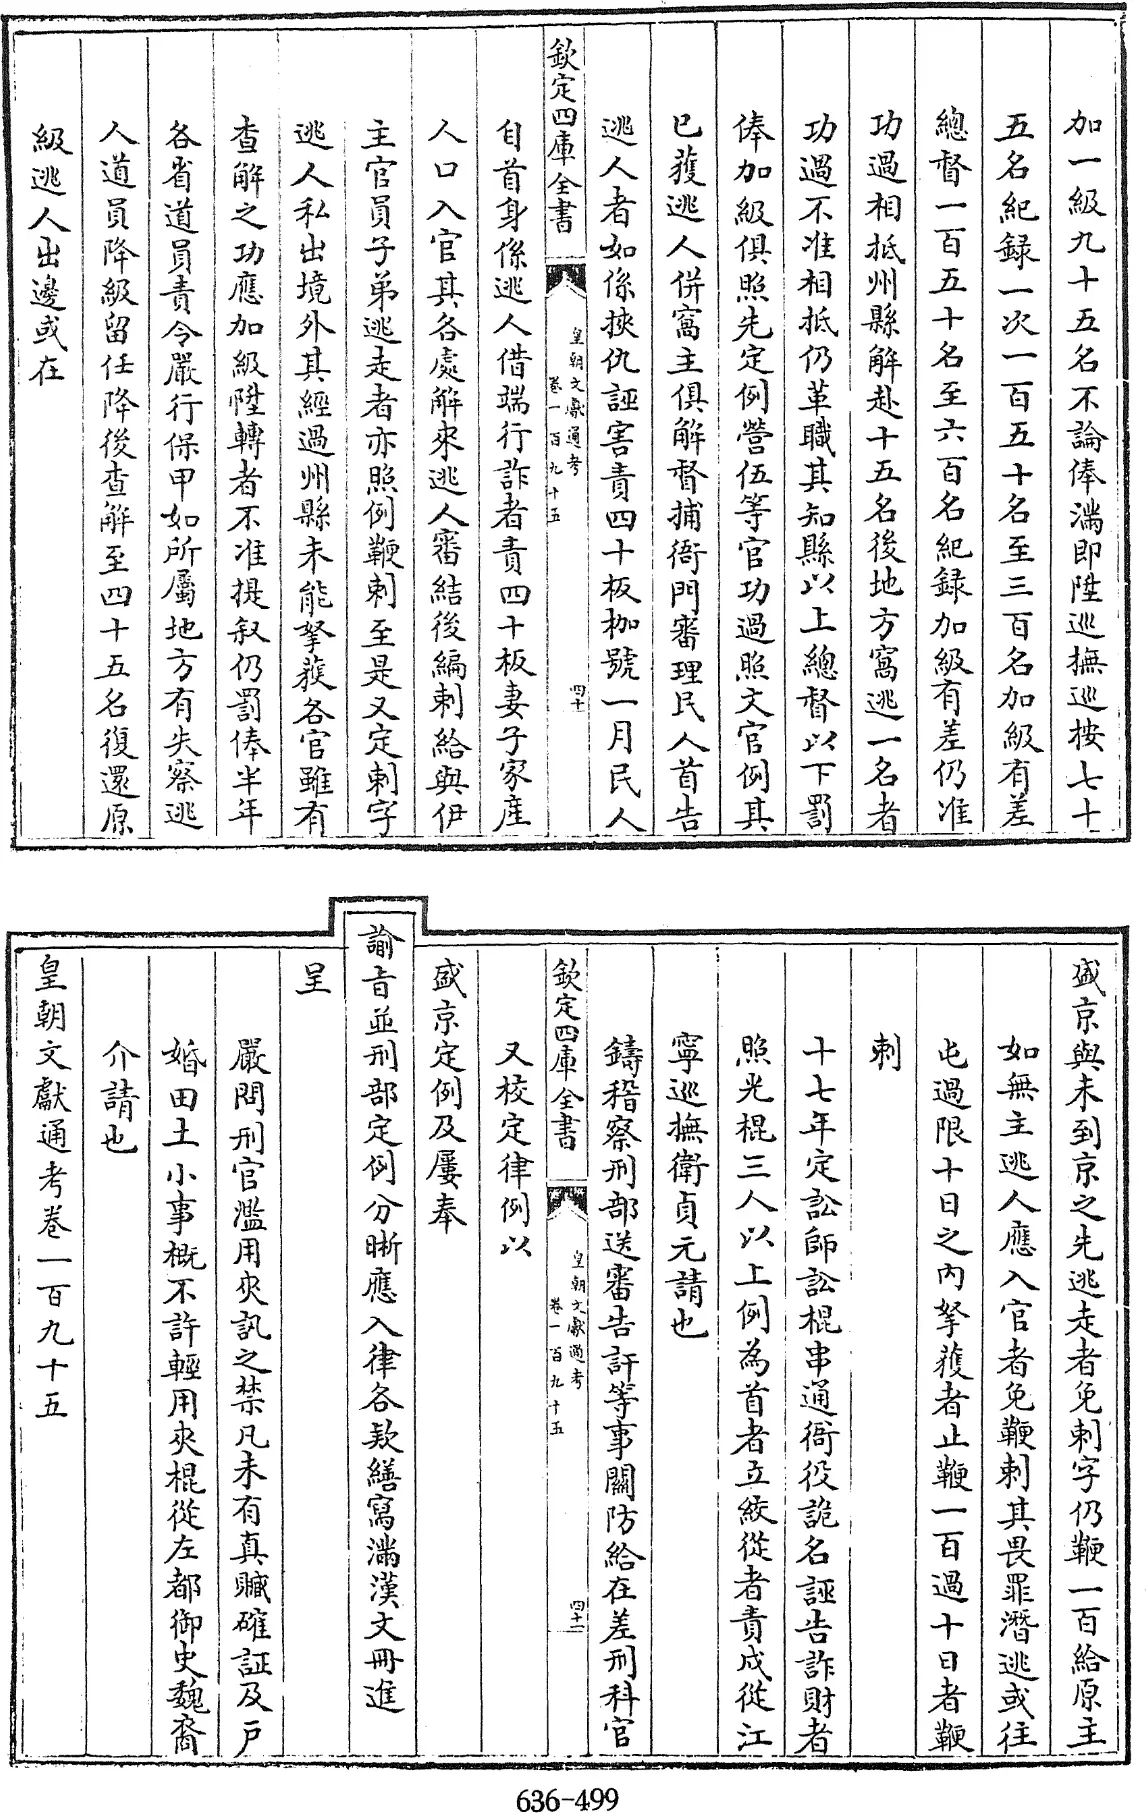 加一級九十五名不論俸滿即陞巡撫巡按七十
五名紀録一次一百五十名至三百名加級有差
總督一百五十名至六百名紀録加級有差仍准
功過相抵州縣解赴十五名後地方窩逃一名者
功過不准相抵仍革職其知縣以上總督以下罰
俸加級俱照先定例營伍等官功過照文官例其
已獲逃人併窩主俱解督捕衙門審理民人首告
逃人者如係挾仇誣害責四十板枷號一月民人
欽定四庫全書
皇朝文獻通考
卷一百九十五
四十
自首身係逃人借端行詐者責四十板妻子家産
人口入官其各處解來逃人審結後編刺給與伊
主官員子弟逃走者亦照例鞭刺至是又定刺字
逃人私出境外其經過州縣未能拏獲各官雖有
查解之功應加級陞轉者不准提叙仍罰俸半年
各省道員責令嚴行保甲如所屬地方有失察逃
人道員降級留任降後查解至四十五名復還原
級逃人出邊或在
盛京與未到京之先逃走者免刺字仍鞭一百給原主
如無主逃人應入官者免鞭刺其畏罪潛逃或往
屯過限十日之內拏獲者止鞭一百過十日者鞭
刺
十七年定訟師訟棍串通衙役詭名誣告詐財者
照光棍三人以上例為首者立絞從者責戍從江
寧巡撫衛貞元請也
鑄稽察刑部送審告訐等事關防給在差刑科官
欽定四庫全書
皇朝文獻通考
卷一百九十五
四十一
又校定律例以
盛京定例及屢奉
諭旨並刑部定例分晰應入律各款繕寫滿漢文冊進
呈
嚴問刑官濫用夾訊之禁凡未有真贓確証及戶
婚田土小事概不許輕用夾棍從左都御史魏裔
介請也
皇朝文獻通考卷一百九十五
636-499